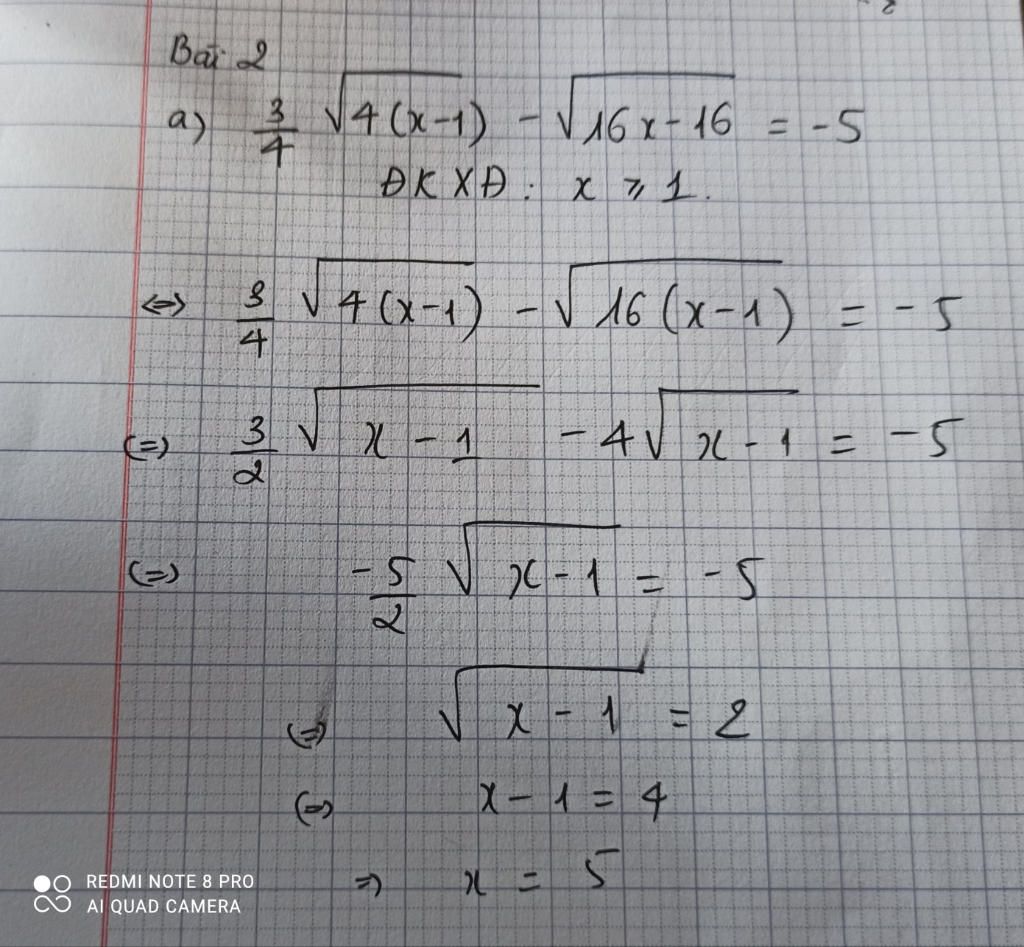 Bài 2
a) 3/4 √4(x-1) - √16x-16 = -5
ĐKXĐ: x ⩾ 1.
<=> 3/4 √4(x-1) - √16(x-1) = -5
(=) 3/2 √x-1 - 4√x-1 = -5
(=) -5/2 √x-1 = -5
(=) √x-1 = 2
(=) x-1 = 4
=> x = 5
REDMI NOTE 8 PRO
AI QUAD CAMERA